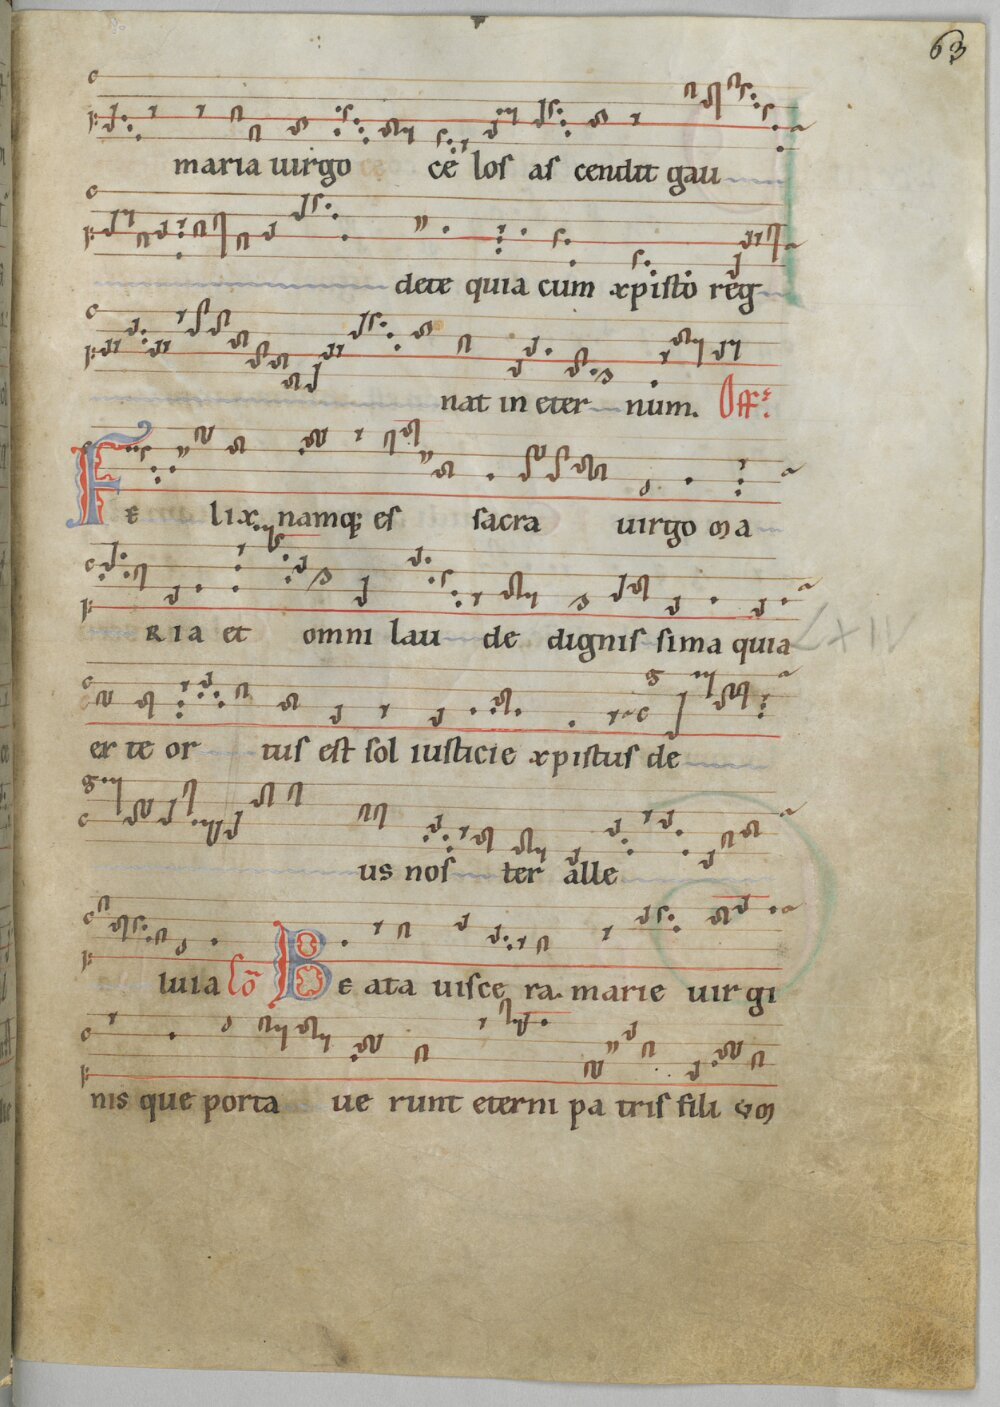 63
maria uirgo ce los as cendit gau
dete quia cum xpisto reg
nat in eter num. Off
Fe lix namq; es sacra uirgo ma
ria et omni lau de dignis sima quia
ex te or tus est sol iusticie xpistus de
us nos ter alle
luia Cō Be ata uisce ra marie uirgi
nis que porta ue runt eterni pa tris fili um